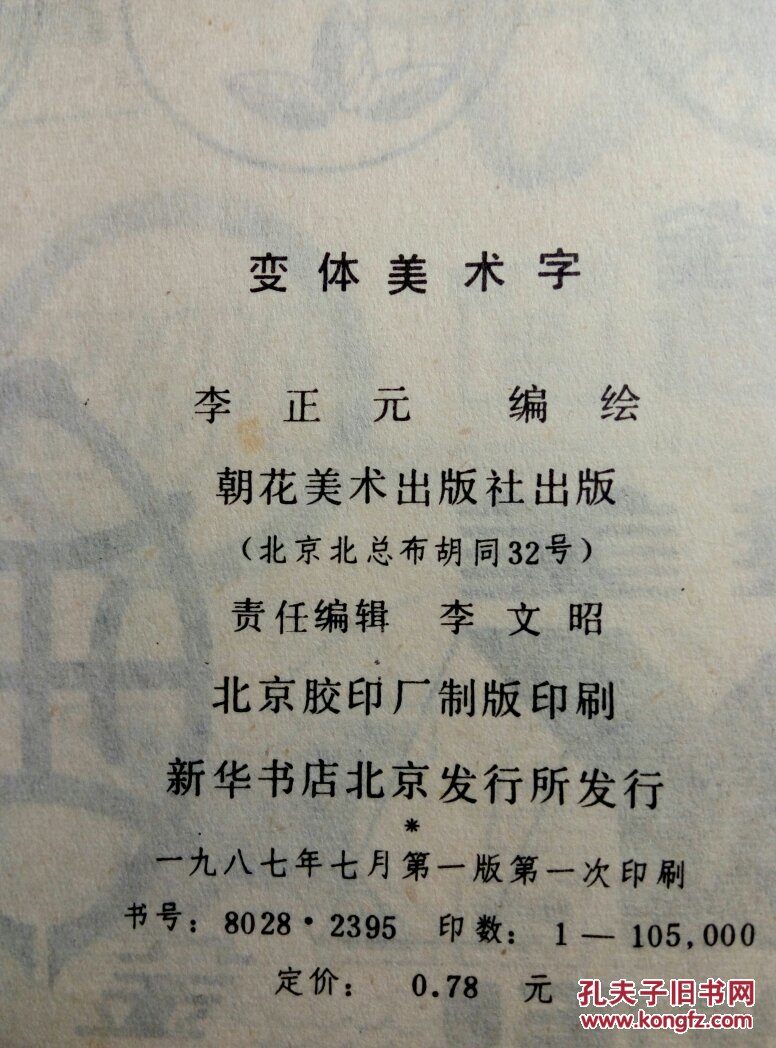 变体美术字
李正元 编绘
朝花美术出版社出版
（北京北总布胡同32号）
责任编辑 李文昭
北京胶印厂制版印刷
新华书店北京发行所发行
*
一九八七年七月第一版第一次印刷
书号：8028·2395 印数：1—105,000
定价：0.78 元
孔夫子旧书网
www.kongfz.com